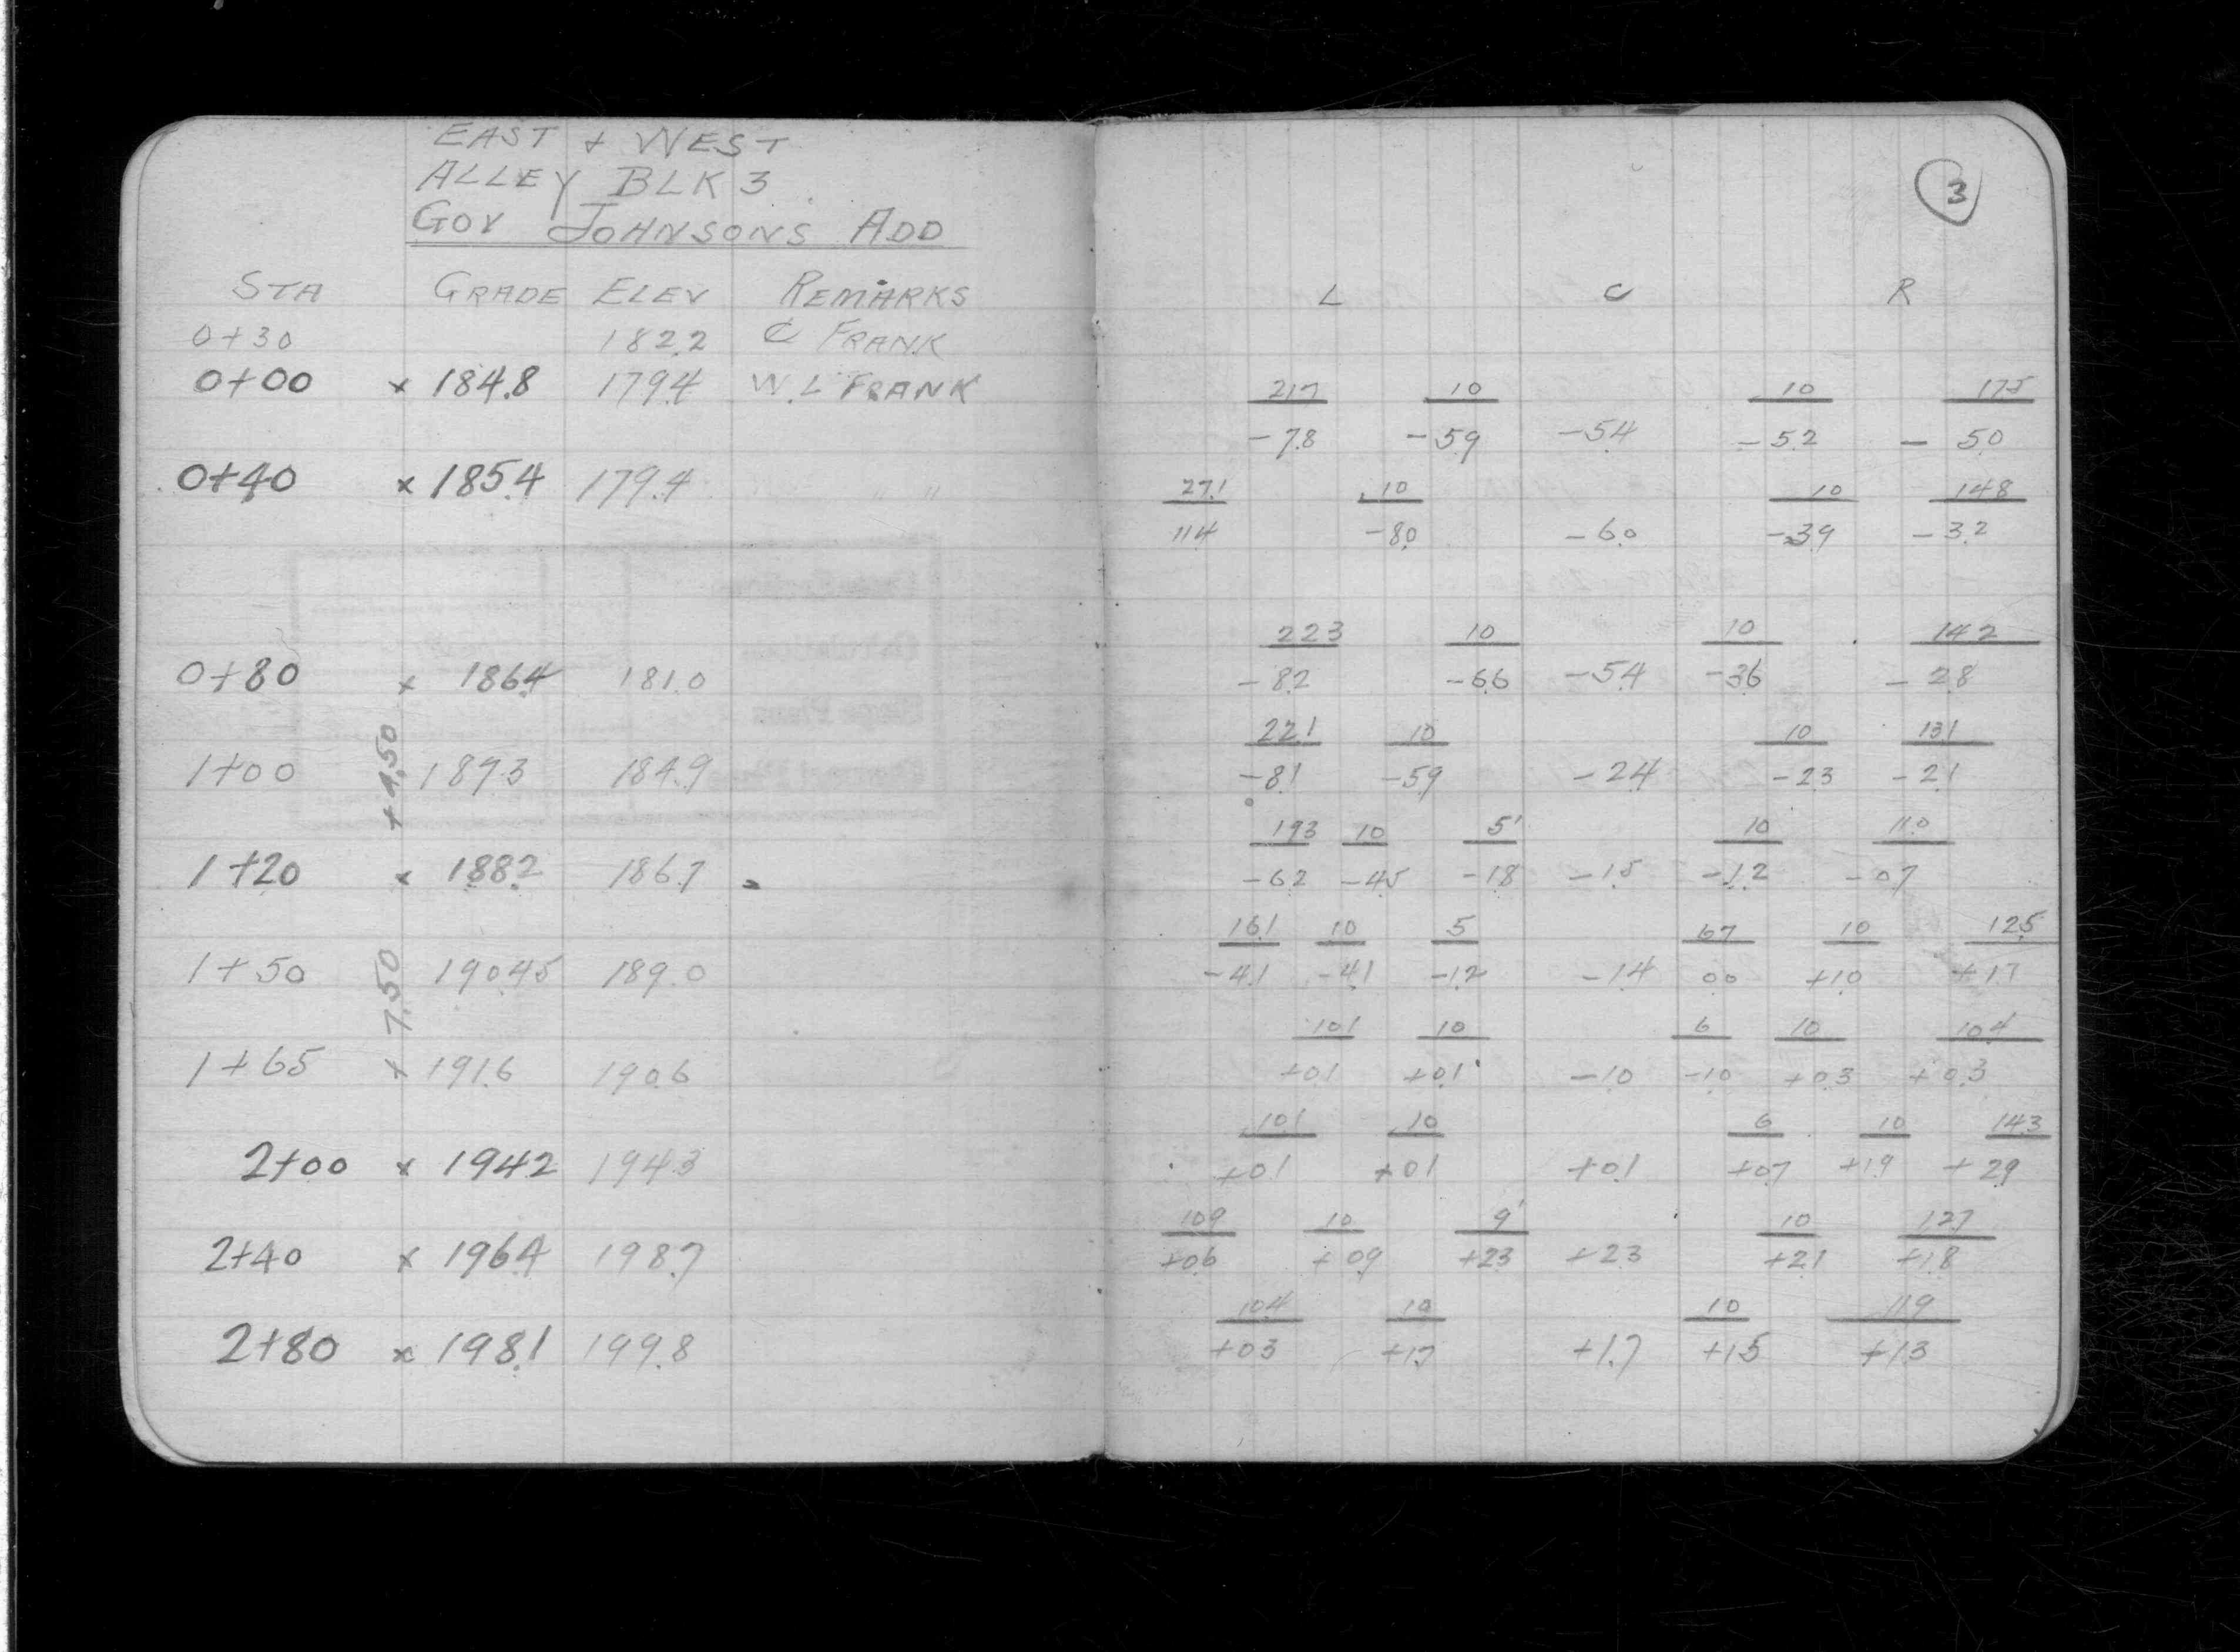 EAST + WEST
ALLEY BLK 3
GOV JOHNSONS ADD
3
STA GRADE ELEV REMARKS L C R
0+30 182.2 ℄ FRANK
0+00 x 184.8 179.4 W.L FRANK
217 10 10 175
-7.8 -5.9 -5.4 -5.2 - 5.0
0+40 x 185.4 179.4 " "
27.1 10 10 14.8
11.4 -8.0 -6.0 -3.9 -3.2
223 10 10 142
0+80 x 186.4 181.0 -8.2 -6.6 -5.4 -3.6 - 2.8
+4.50
22.1 10 10 13.1
1+00 189.3 184.9 -8.1 -5.9 -2.4 -2.3 -2.1
19.3 10 5' 10 11.0
1+20 x 188.2 186.7 -6.2 -4.5 -1.8 -1.5 -1.2 -0.7
+ 7.50
16.1 10 5 6.7 10 12.5
1+50 190.45 189.0 -4.1 -4.1 -1.2 -1.4 0.0 +1.0 +1.7
10.1 10 6 10 10.4
1+65 191.6 190.6 +0.1 +0.1 -1.0 -1.0 +0.3 +0.3
10.1 10 6 10 14.3
2+00 x 194.2 194.3 +0.1 +0.1 +0.1 +0.7 +1.9 + 2.9
10.9 10 9' 10 12.7
2+40 x 196.4 198.7 +0.6 +0.9 +2.3 +2.3 +2.1 +1.8
10.4 10 10 11.9
2+80 x 198.1 199.8 +0.3 +1.7 +1.7 +1.5 +1.3